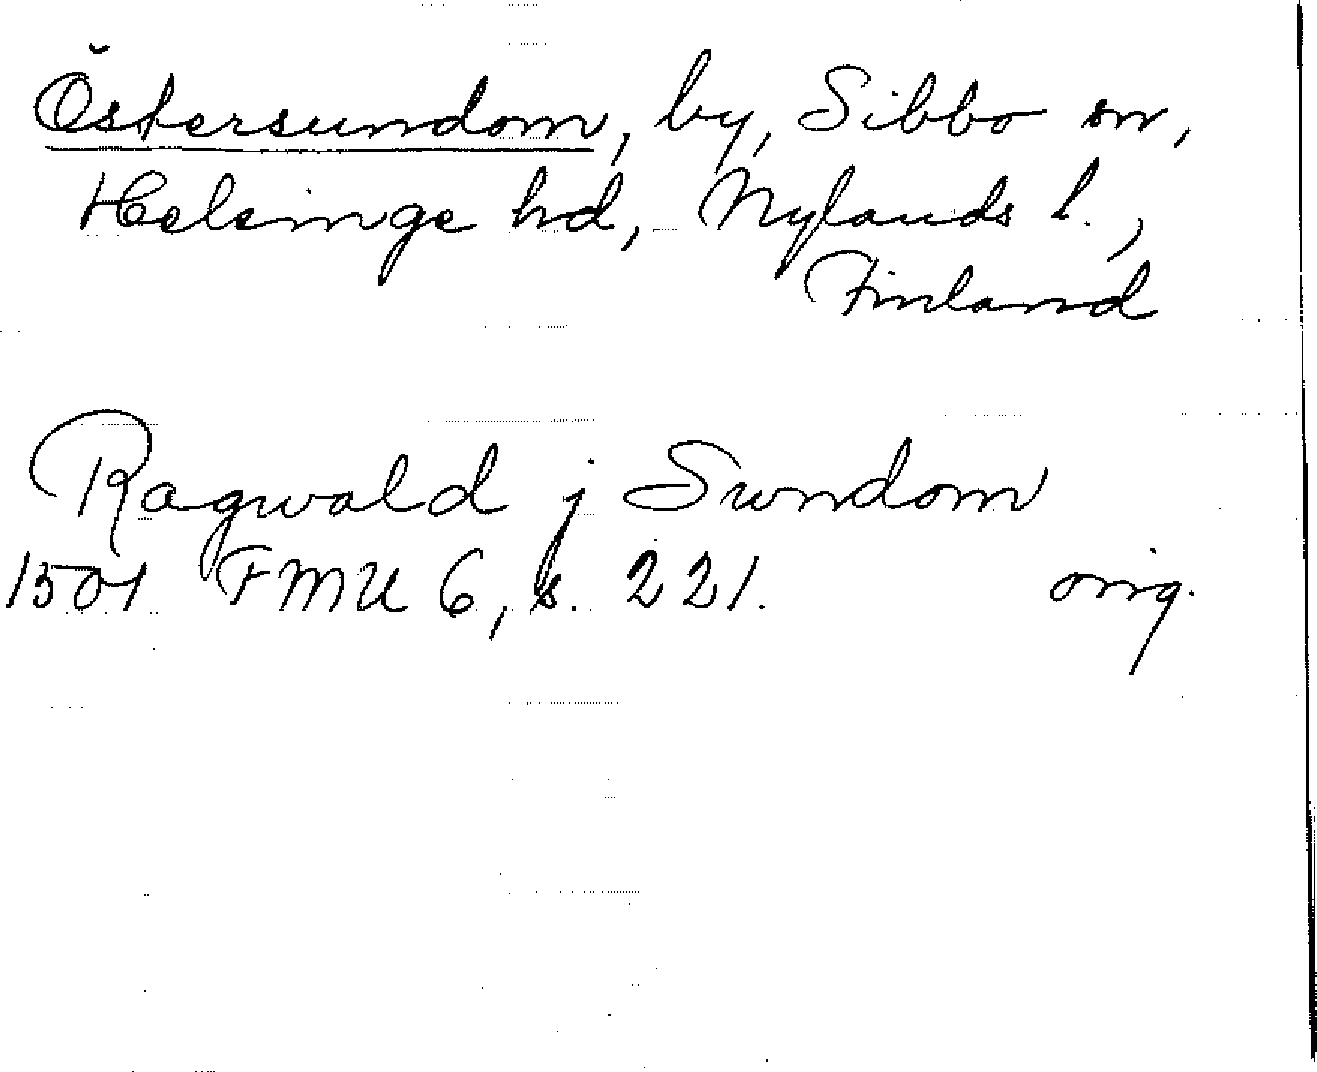 Östersundom, by, Sibbo sn,
Helsinge hd, Nylands l.,
Finland
Ragwald j Swndom
1501 FMU 6, s. 221. orig.